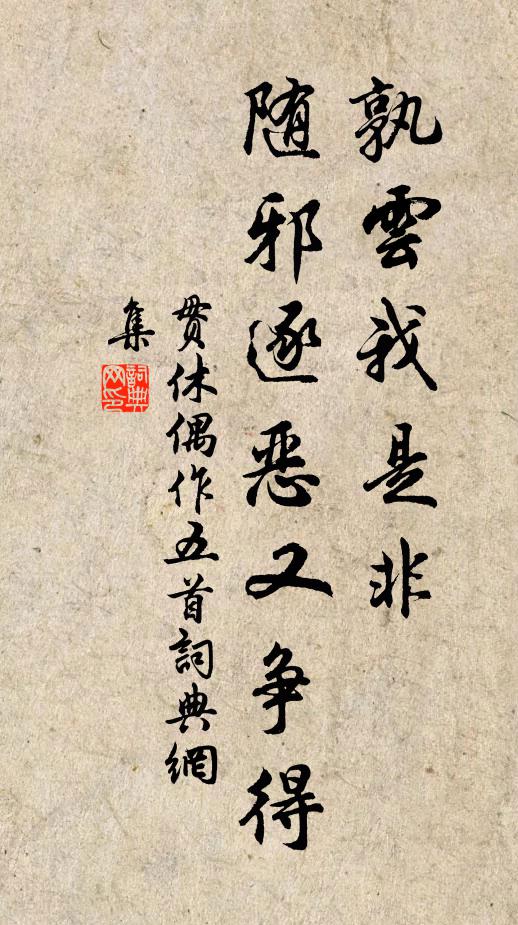 孰雲我是非
随邪逐恶又争得
贯休偶作五首詞典網
集
詞典網印